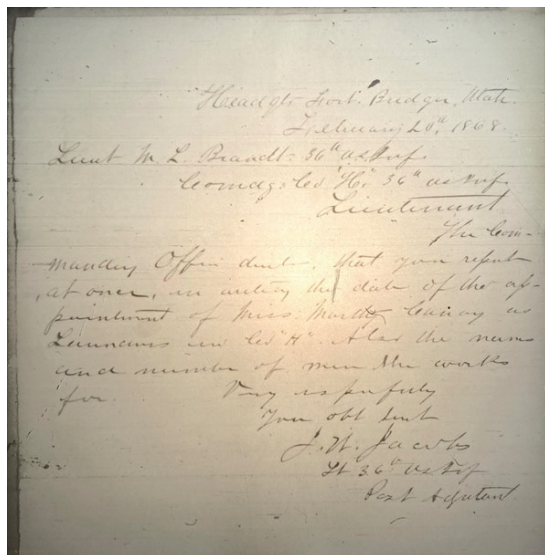 Headqts Fort. Bridger, Utah.
February 20th, 1868.
Lieut M. L. Brandt. 36th U.S. Inf.
Comdg. Co. "H" 36th U.S. Inf.
Lieutenant
The Com-
manding Officer, that you report
at once, in writing the date of the ap-
pointment of Miss. Martha Canary as
Laundress in Co. "H". Also the name
and number of men she works
for. Very respectfully
Your obt Servt
J. W. Jacobs
Lt 36th U.S. Inf
Post Adjutant